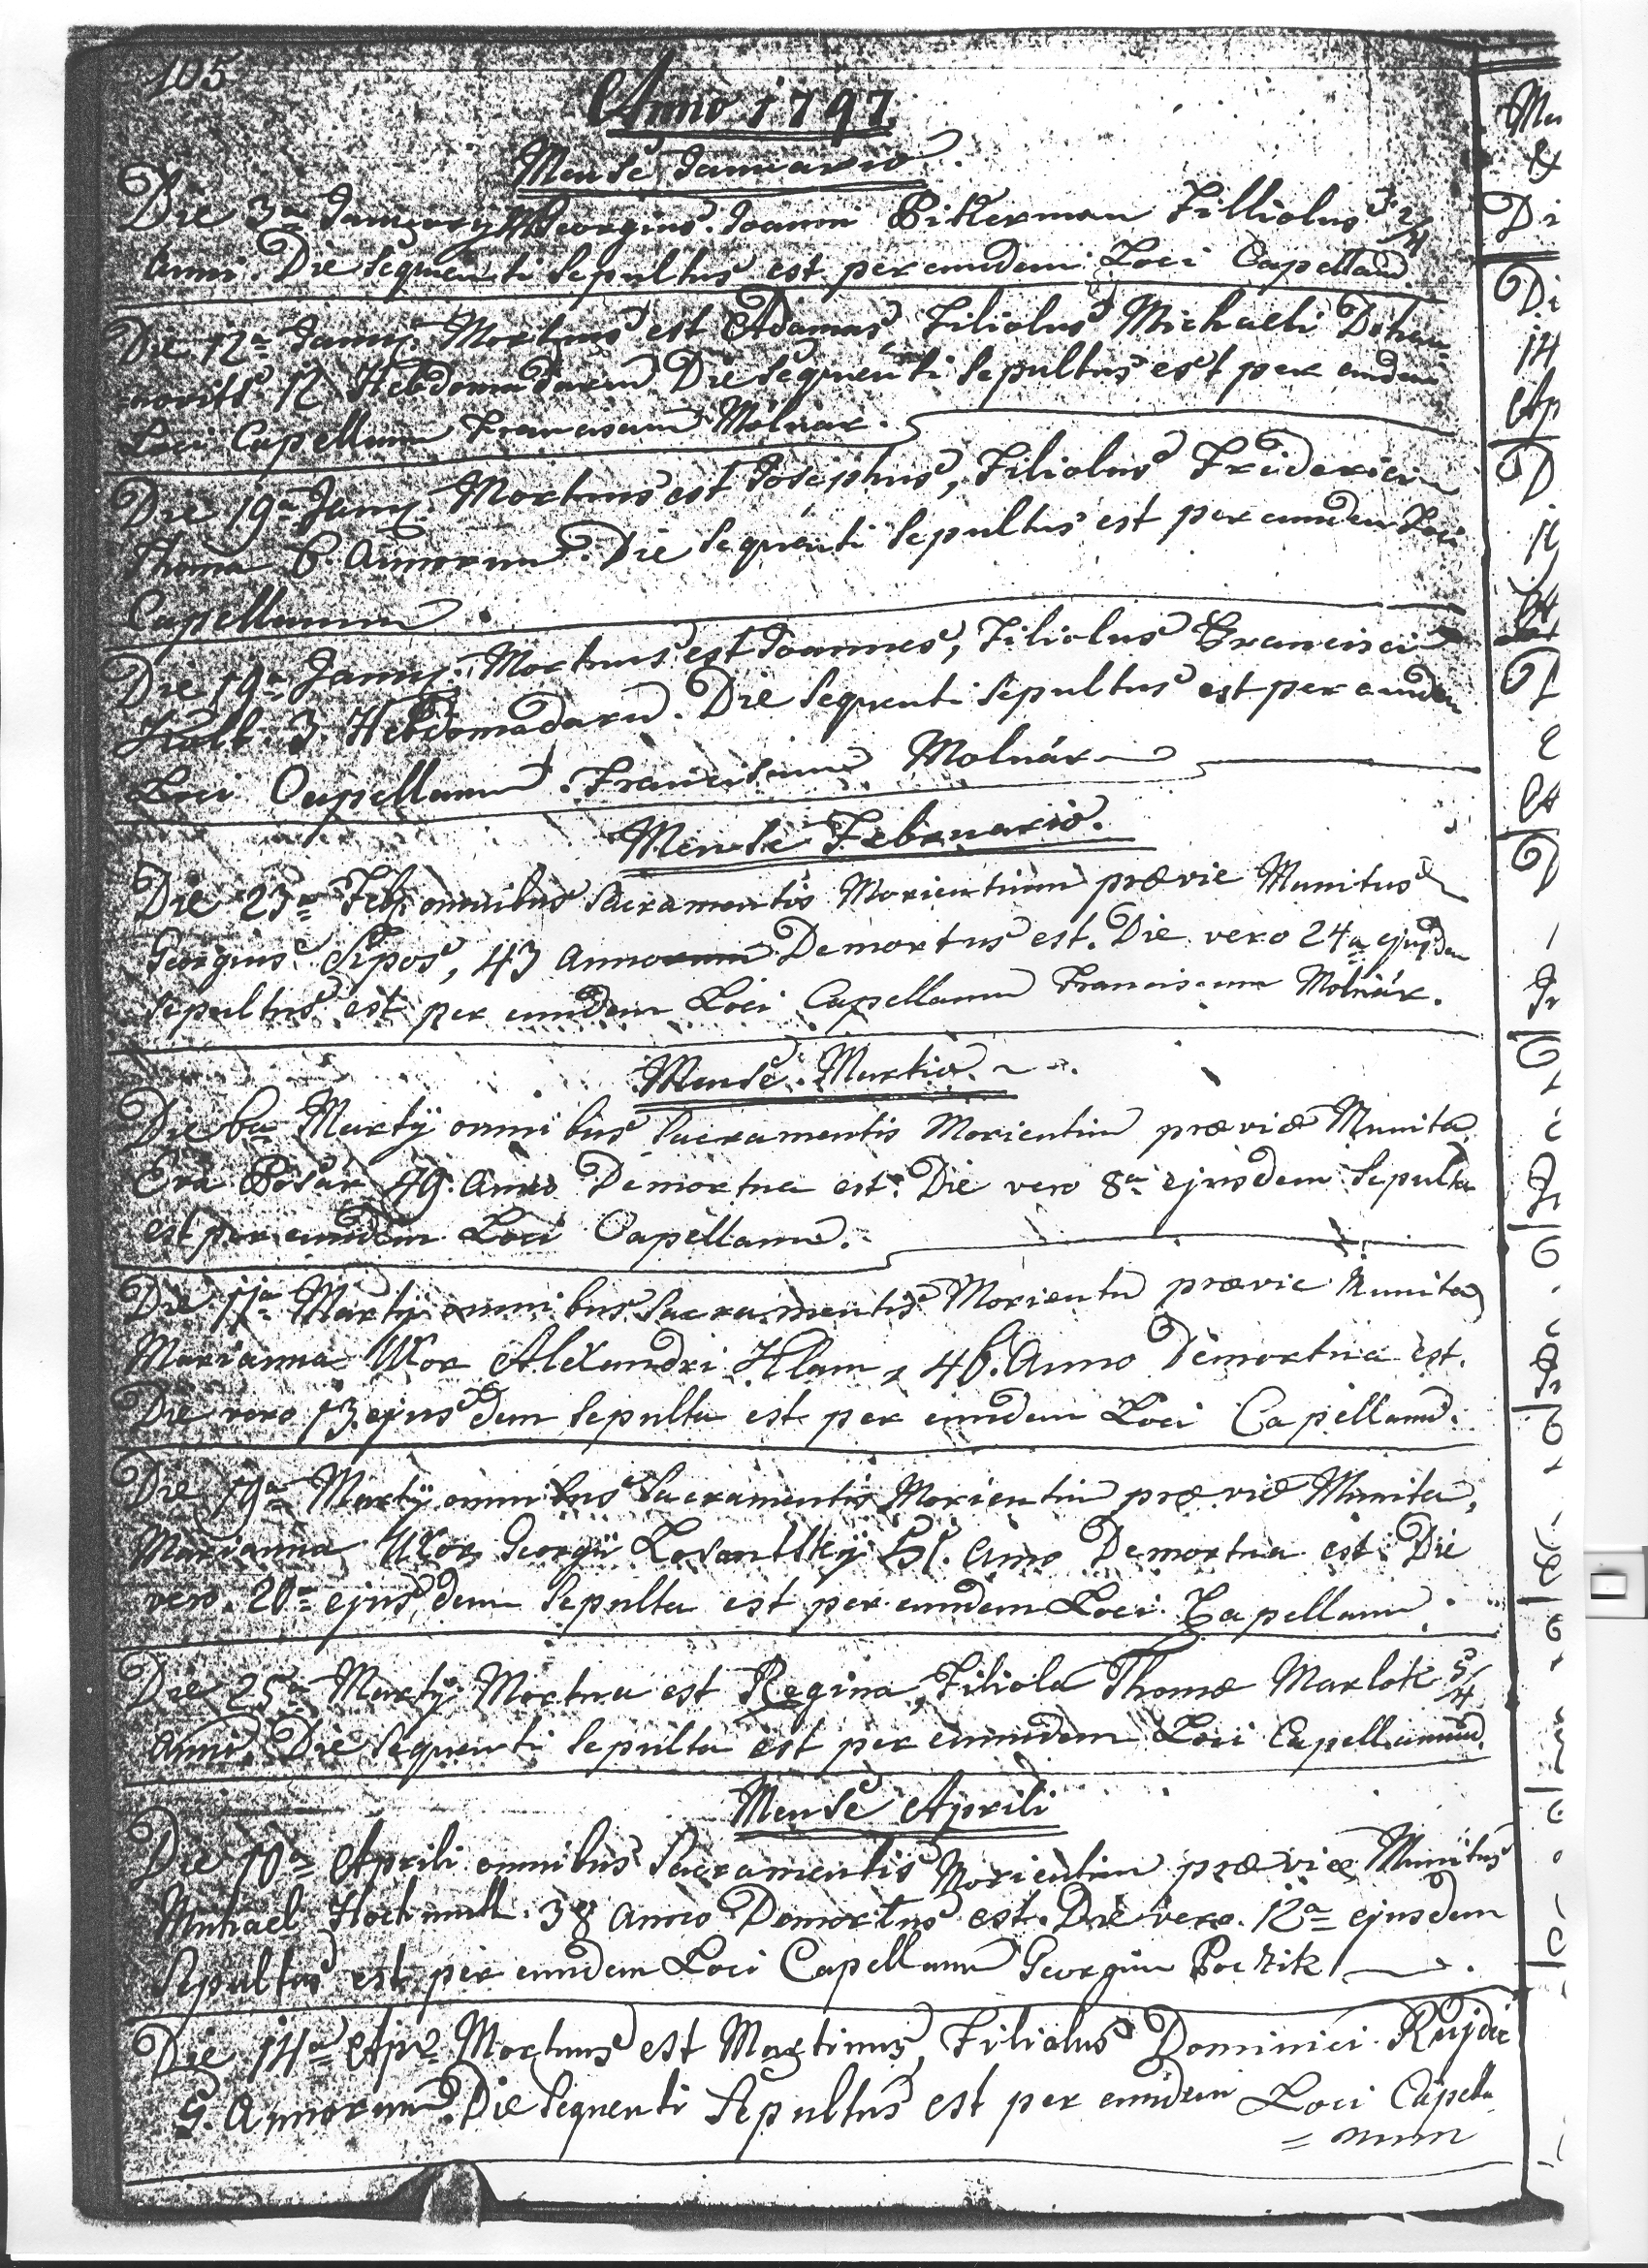 105
Anno 1797
Mense Januario.
Die 3a Januarÿ Georgius Joanni Pikerman Filliolus 3 2/4
Anni. Die sequenti sepultus est per eundem Loci Capellanū.
Die 12a Januÿ. Mortuus est Adamas, Filiolus Michaeli Dohan-
novits 12 Hebdomadarum Die sequenti sepultus est per eundem
Loci Capellanum Franciscum Mólnár.
Die 19a Janÿ. Mortuus est Josephus, Filiolus Friderici
Thoma 6. Annorum. Die sequenti sepultus est per eundem Loci
Capellanum.
Die 19a Januÿ. Mortuus est Joannes, Filiolus Francisci
3. Hebdomadarū. Die sequenti sepultus est per eundem
Loci Capellanum. Franciscum Molnár
Mense Februario.
Die 23a Feb. omnibus Sacramentis Morientium prævie Munitus
Georgius Sipos, 43 Annorum Demortus est. Die vero 24a ejusdem
sepultus est per eundem Loci Capellanum Franciscum Molnár.
Mense Martio.
Die 6a Martÿ omnibus Sacramentis Morientiu prævie Munita
Eva Bosar 49. Anno Demortua est. Die vero 8a ejusdem sepulta
est per eundem Loci Capellanum.
Die 11a Martÿ omnibus Sacramentis Morientiu prævie Munita
Marianna Uxor Alexandri Hlam, 46. Anno Demortua est.
Die vero 13 ejusdem sepulta est per eundem Loci Capellanū.
Die 19a Martÿ omnibus Sacramentis Morientiu prævie Munita,
Marianna Uxor Georgii 51. Anno Demortua est. Die
vero. 20a ejusdem sepulta est per eundem Loci Capellanum.
Die 25a Martÿ Mortua est Regina, Filiola Thomæ Marlok 3/4
Anni. Die sequenti sepulta est per eumdem Loci Capellanum.
Mense Aprili
Die 10a Aprili omnibus Sacramentis Morientiu prævie Munitus
Mihael Hochmull. 38 Anno Demortus est. Die vero. 12a ejusdem
Sepultus est per eundem Loci Capellanum Georgiū Poczik
Die 14a Apr Mortuus est Martinus, Filiolus Dominici
5. Annorum. Die sequenti Sepultus est per eundem Loci Capella
= num